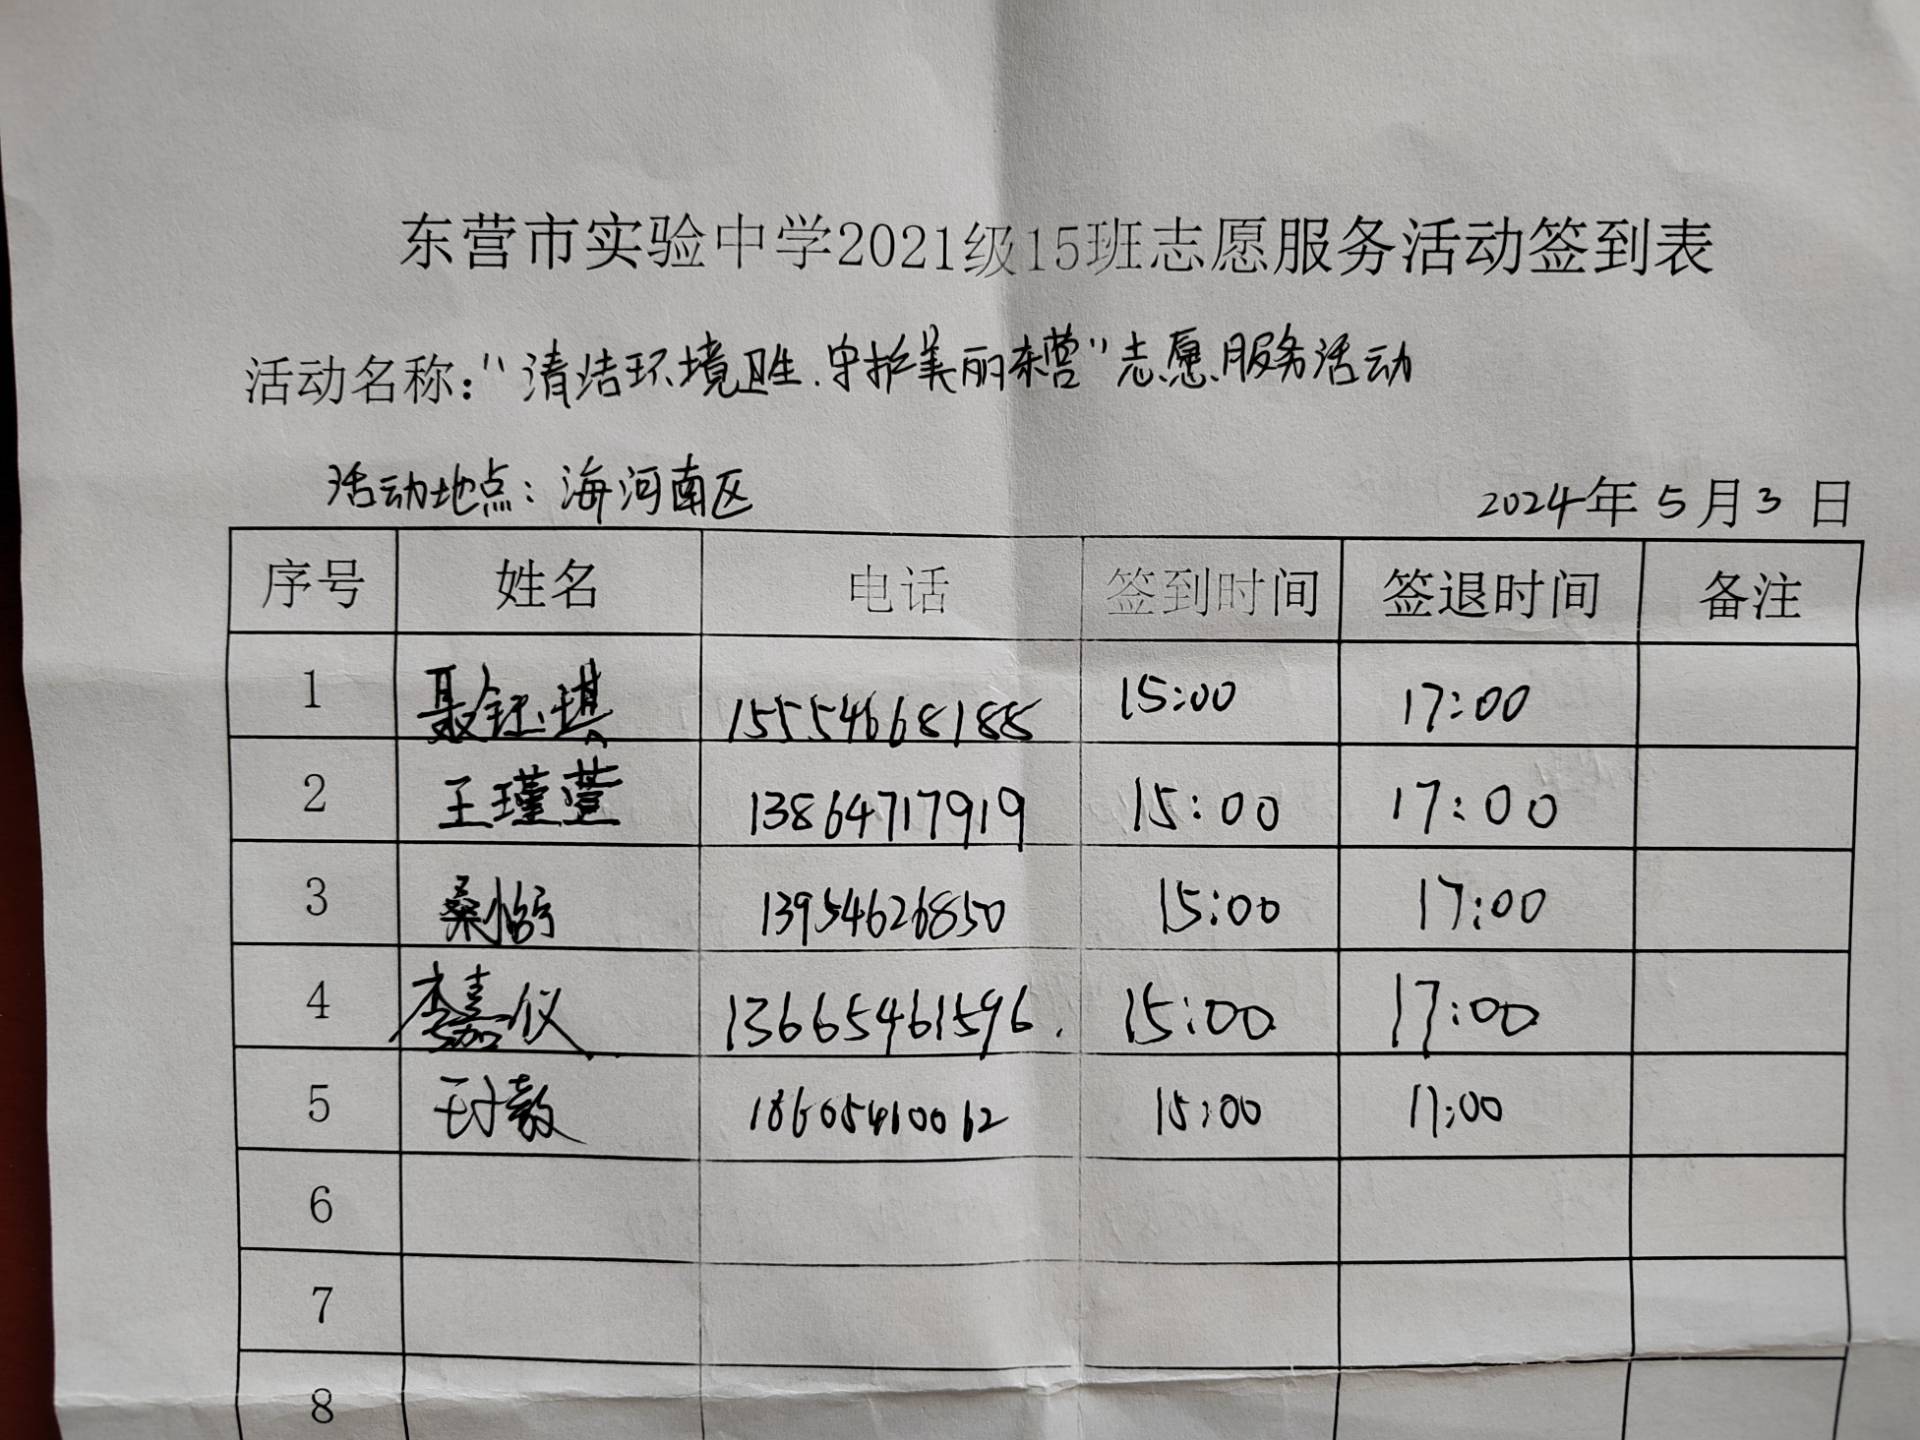 东营市实验中学2021级15班志愿服务活动签到表
活动名称："清洁环境卫生.守护美丽东营"志愿服务活动
活动地点：海河南区
2024年5月3日
序号 姓名 电话 签到时间 签退时间 备注
1 聂钰琪 15554668188 15:00 17:00
2 王瑾萱 13864717919 15:00 17:00
3 桑 13954626850 15:00 17:00
4 李嘉仪 13665461596. 15:00 17:00
5 18605410062 15:00 17:00
6
7
8